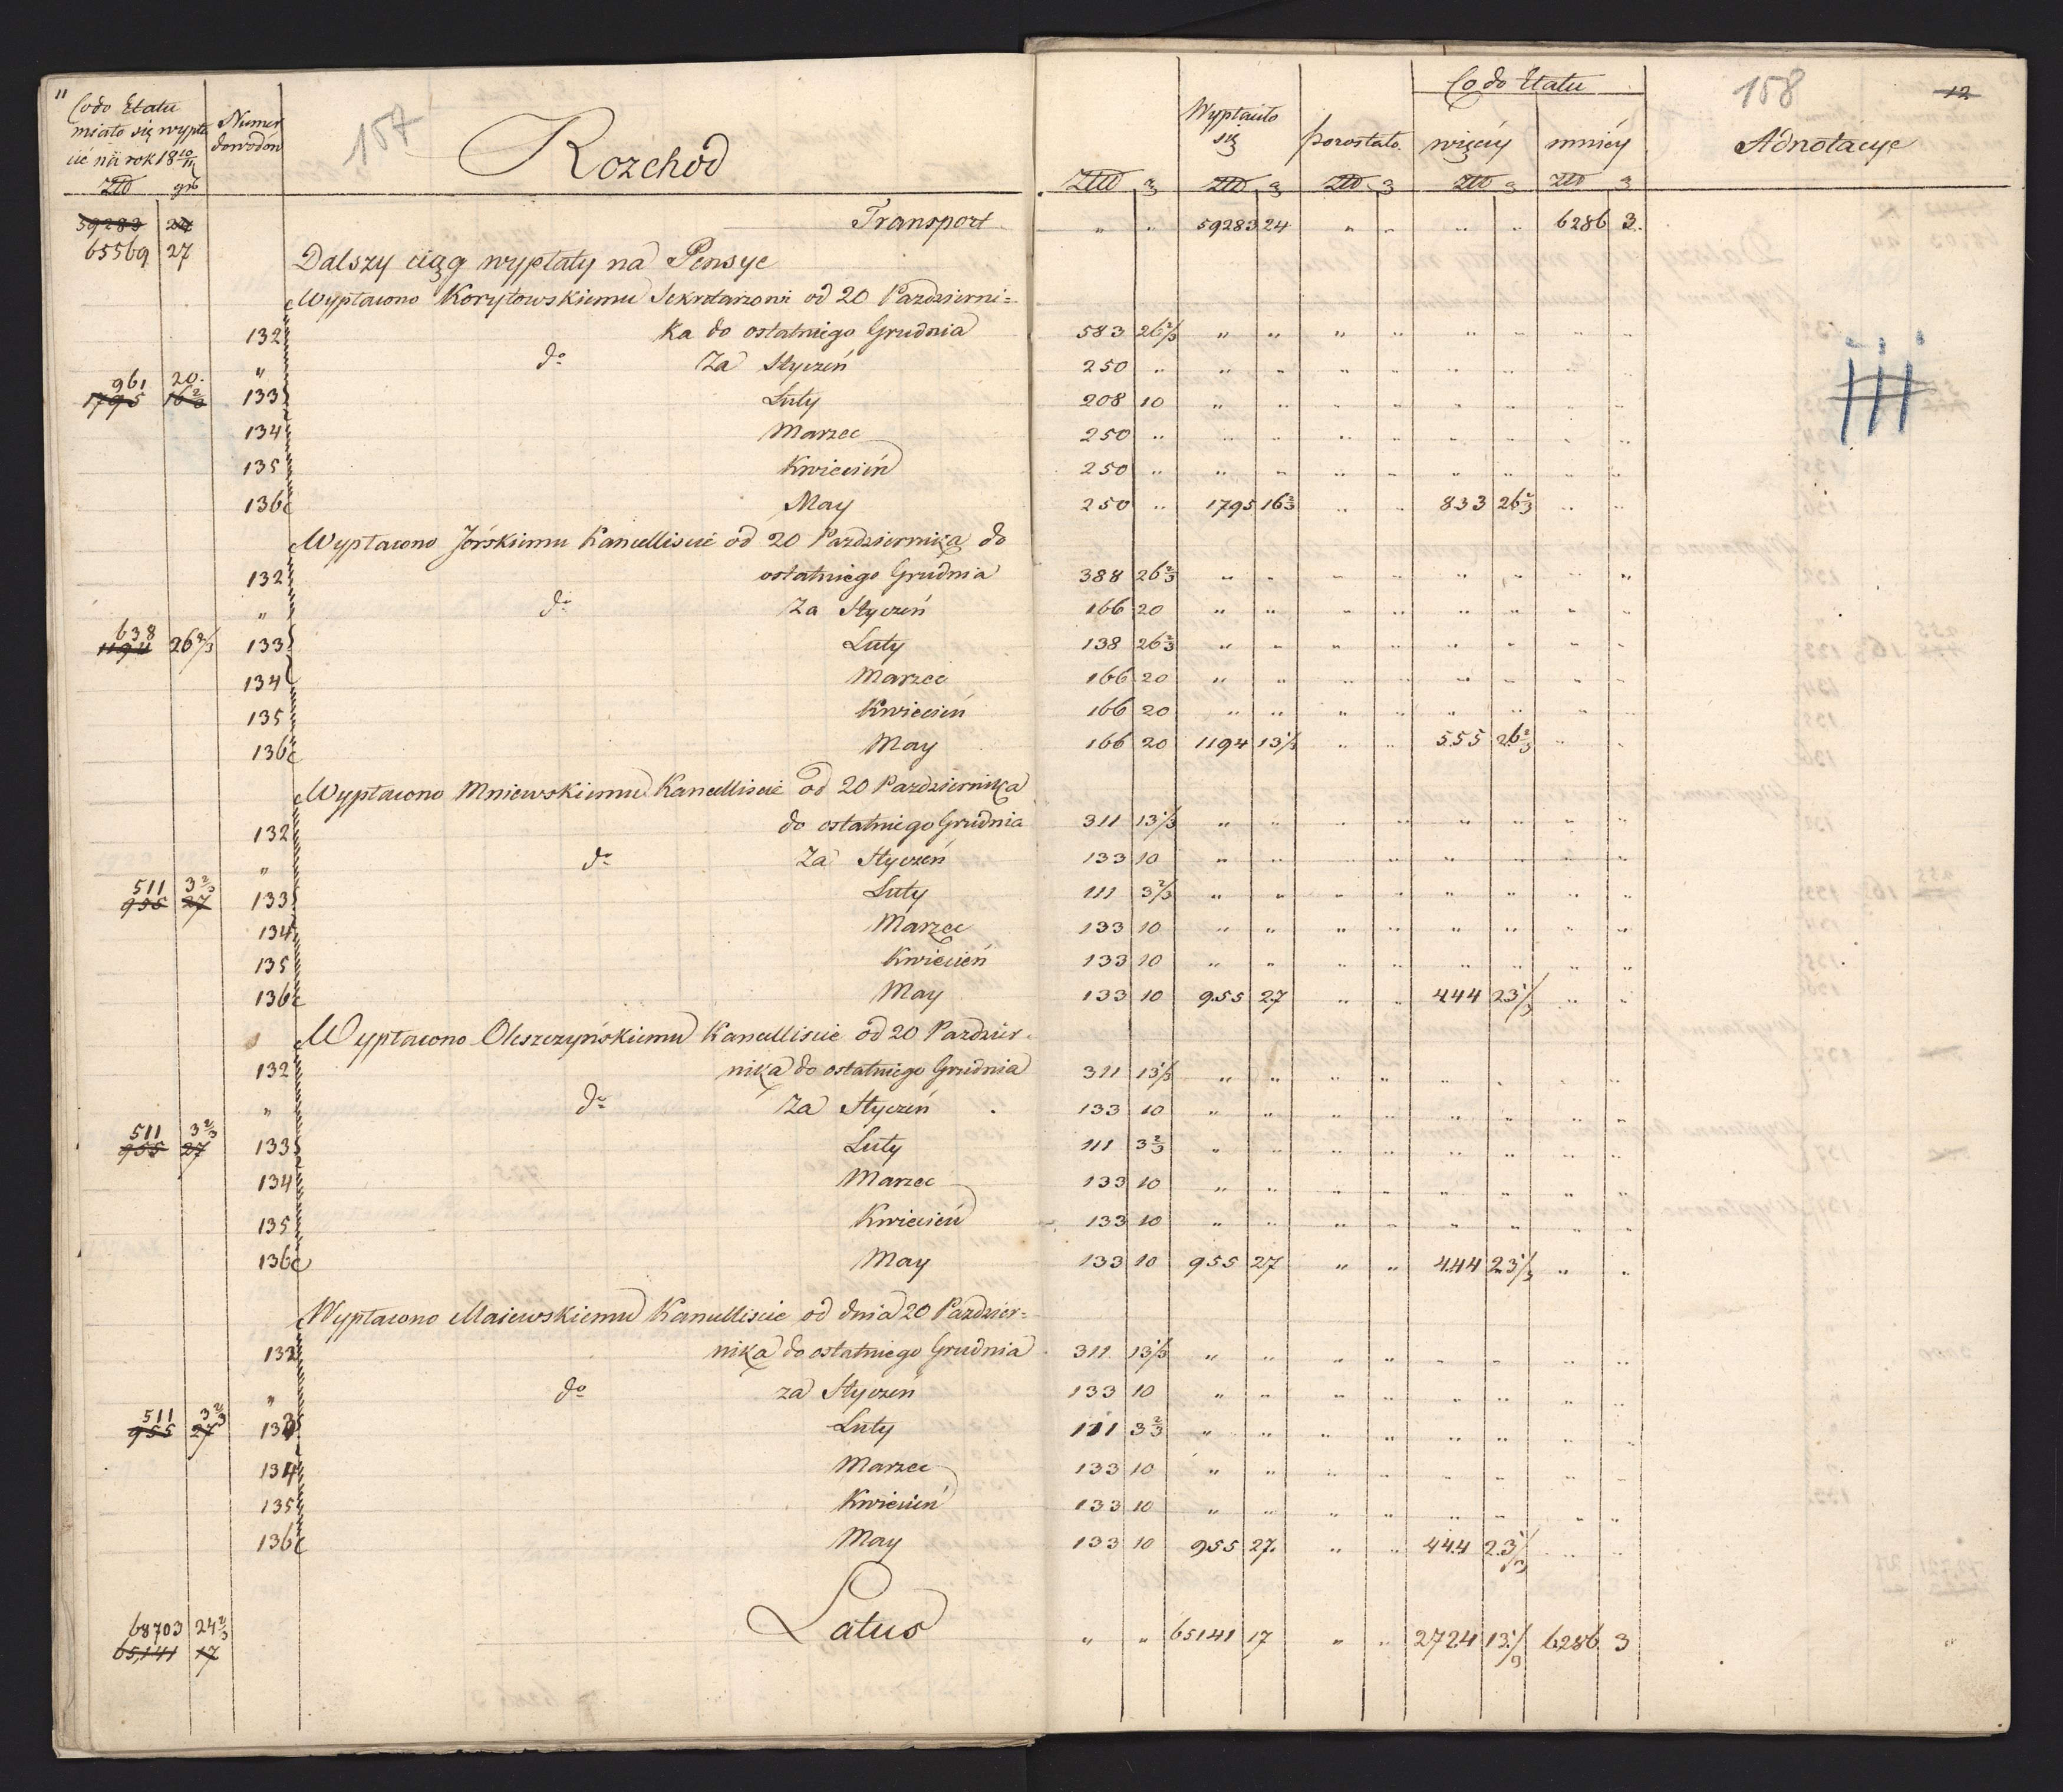 11
Codo Etatu
miało się wypła
cić na rok 18 10/11
Złt grb
Numer
dowodów
157
Rozchod
Wypłaciło
się
pozostało
Co do Etatu
więcéy
mniéy
158
12
Adnotacye
59283 24 Transport " " 59283 24 " " " " 6286 3.
65569 27 Dalszy ciąg wypłaty na Pensye
Wypłacono Korytowskiemu Sekretarzowi od 20 Pazdzierni=
132 ka do ostatniego Grudnia 583 26 2/3 " " " " " " " "
" do Za Styczeń 250 " " " " " " " " "
961 20.
1795 16 2/3 133 Luty 208 10 " " " " " " " "
134 Marzec 250 " " " " " " " " "
135 Kwiecień 250 " " " " " " " " "
136 May 250 " 1795 16 2/3 " " 833 26 2/3 " "
Wypłacono Jórskiemu Kancelliscie od 20 Pazdziernika do
132 ostatniego Grudnia 388 26 2/3 " " " " " " " "
" do Za Styczeń 166 20 " " " " " " " "
638
1194 26 2/3 133 Luty 138 26 2/3 " " " " " " " "
134 Marzec 166 20 " " " " " " " "
135 Kwiecień 166 20 " " " " " " " "
136 May 166 20 1194 13 1/3 " " 555 26 2/3 " "
Wypłacono Mniewskiemu Kancelliscie od 20 Pazdziernika
132 do ostatniego Grudnia 311 13 1/3 " " " " " " " "
" do Za Styczeń 133 10 " " " " " " " "
511 3 2/3
955 27 133 Luty 111 3 2/3 " " " " " " " "
134 Marzec 133 10 " " " " " " " "
135 Kwiecień 133 10 " " " " " " " "
136 May 133 10 955 27 " " 444 23 1/3 " "
Wypłacono Oleszczyńskiemu Kancelliscie od 20 Pazdzier=
132 nika do ostatniego Grudnia 311 13 1/3 " " " " " " " "
" do Za Styczeń 133 10 " " " " " " " "
511 3 2/3
955 27 133 Luty 111 3 2/3 " " " " " " " "
134 Marzec 133 10 " " " " " " " "
135 Kwiecień 133 10 " " " " " " " "
136 May 133 10 955 27 " " 444 23 1/3 " "
Wypłacono Maiewskiemu Kancelliscie od dnia 20 Pazdzier=
132 nika do ostatniego Grudnia 311 13 1/3 " " " " " " " "
" do za Styczeń 133 10 " " " " " " " "
511 3 2/3
955 27 133 Luty 111 3 2/3 " " " " " " " "
134 Marzec 133 10 " " " " " " " "
135 Kwiecień 133 10 " " " " " " " "
136 May 133 10 955 27. " " 444 23 1/3 " "
68703 24 2/3
65,141 17 Latus " " 65141 17 " " 2724 13 1/3 6286 3